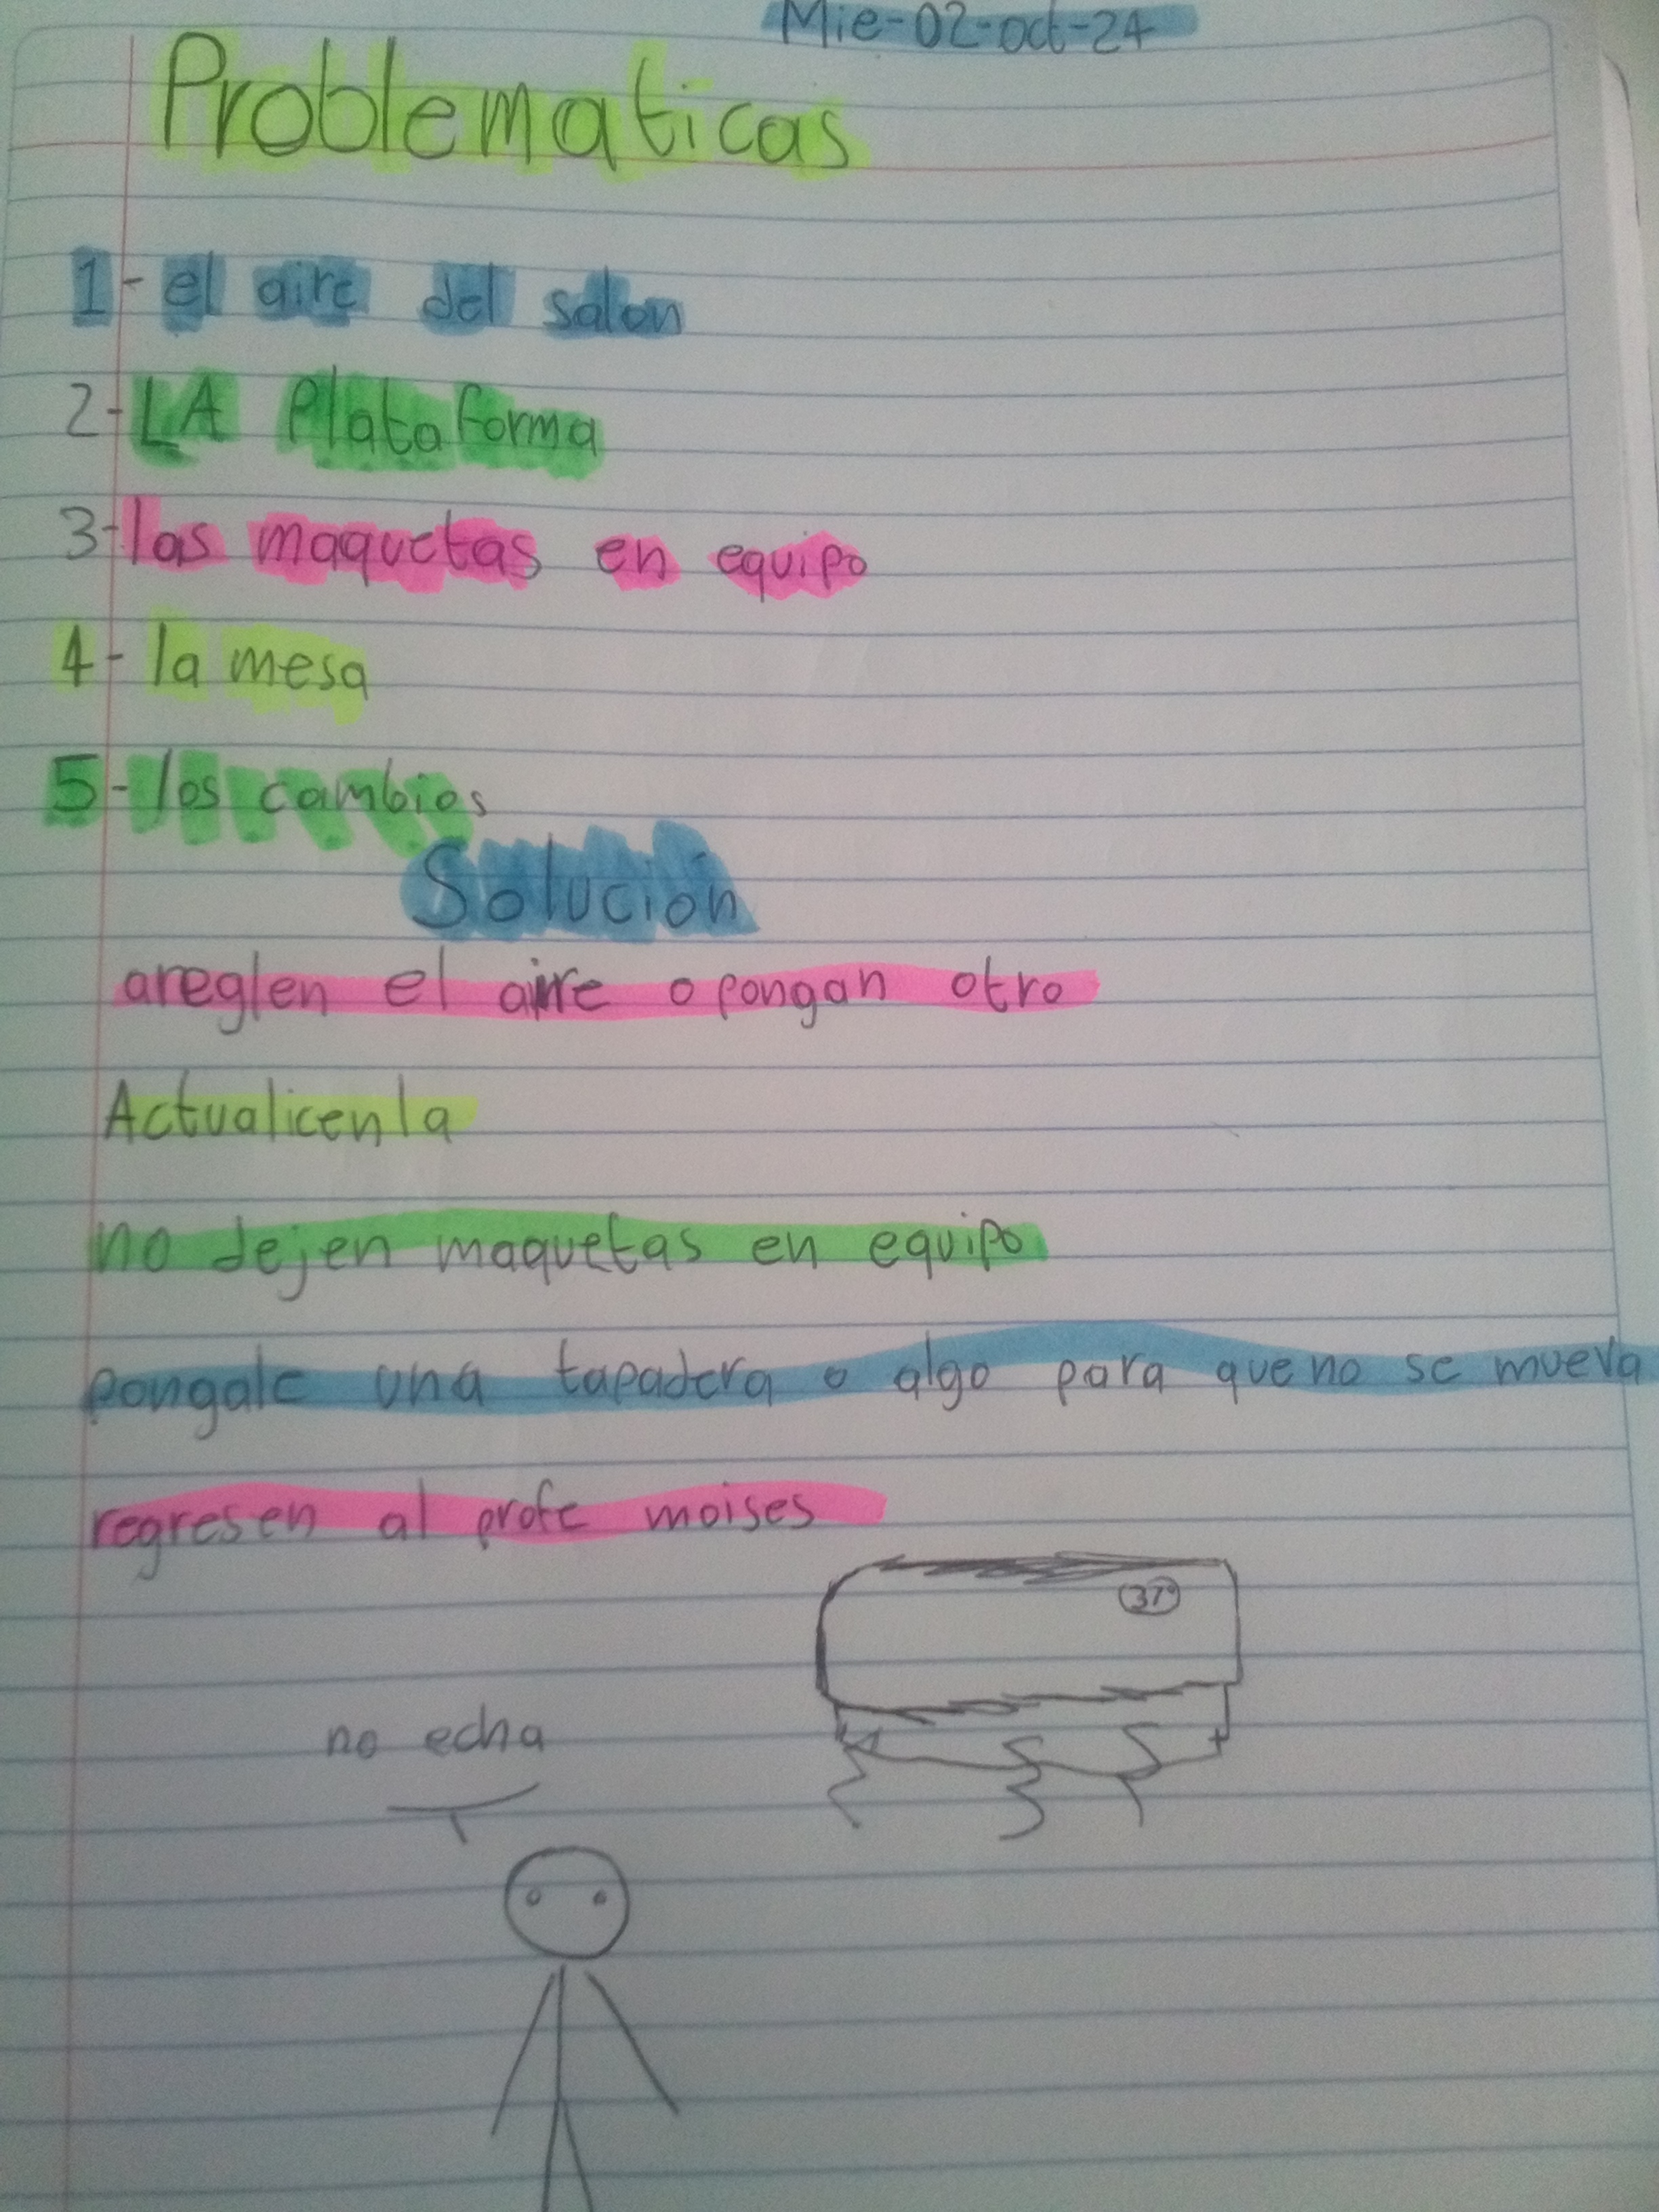 Mie-02-oct-24
Problematicas
1- el aire del salon
2- LA Plataforma
3- las maquetas en equipo
4- la mesa
5- los cambios
Solución
areglen el aire o pongan otro
Actualicenla
no dejen maquetas en equipo
pongale una tapadera o algo para que no se mueva
regresen al profe moises
37°
no echa